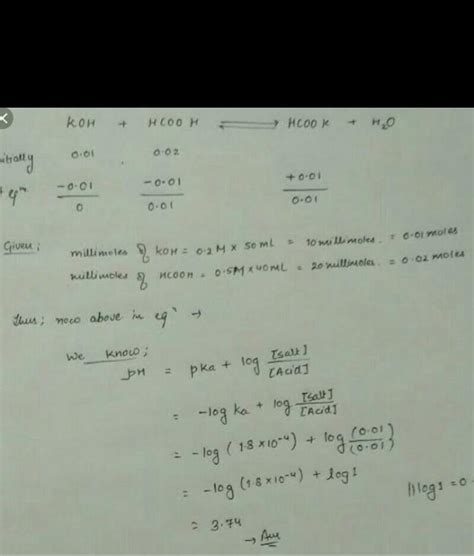 KOH + HCOOH ⇌ HCOOK + H₂O
itially 0.01 0.02
eqᵐ -0.01 -0.01 +0.01
0 0.01 0.01
Given; millimoles of KOH = 0.2M × 50mL = 10 millimoles. = 0.01 moles
millimoles of HCOOH = 0.5M × 40mL = 20 millimoles. = 0.02 moles
Thus; now above in eqⁿ →
We know;
pH = pKa + log [Salt]/[Acid]
= -log ka + log [Salt]/[Acid]
= -log (1.8×10⁻⁴) + log (0.01)/(0.01)
= -log (1.8×10⁻⁴) + log1 || log1 = 0
= 3.74
→ Ans